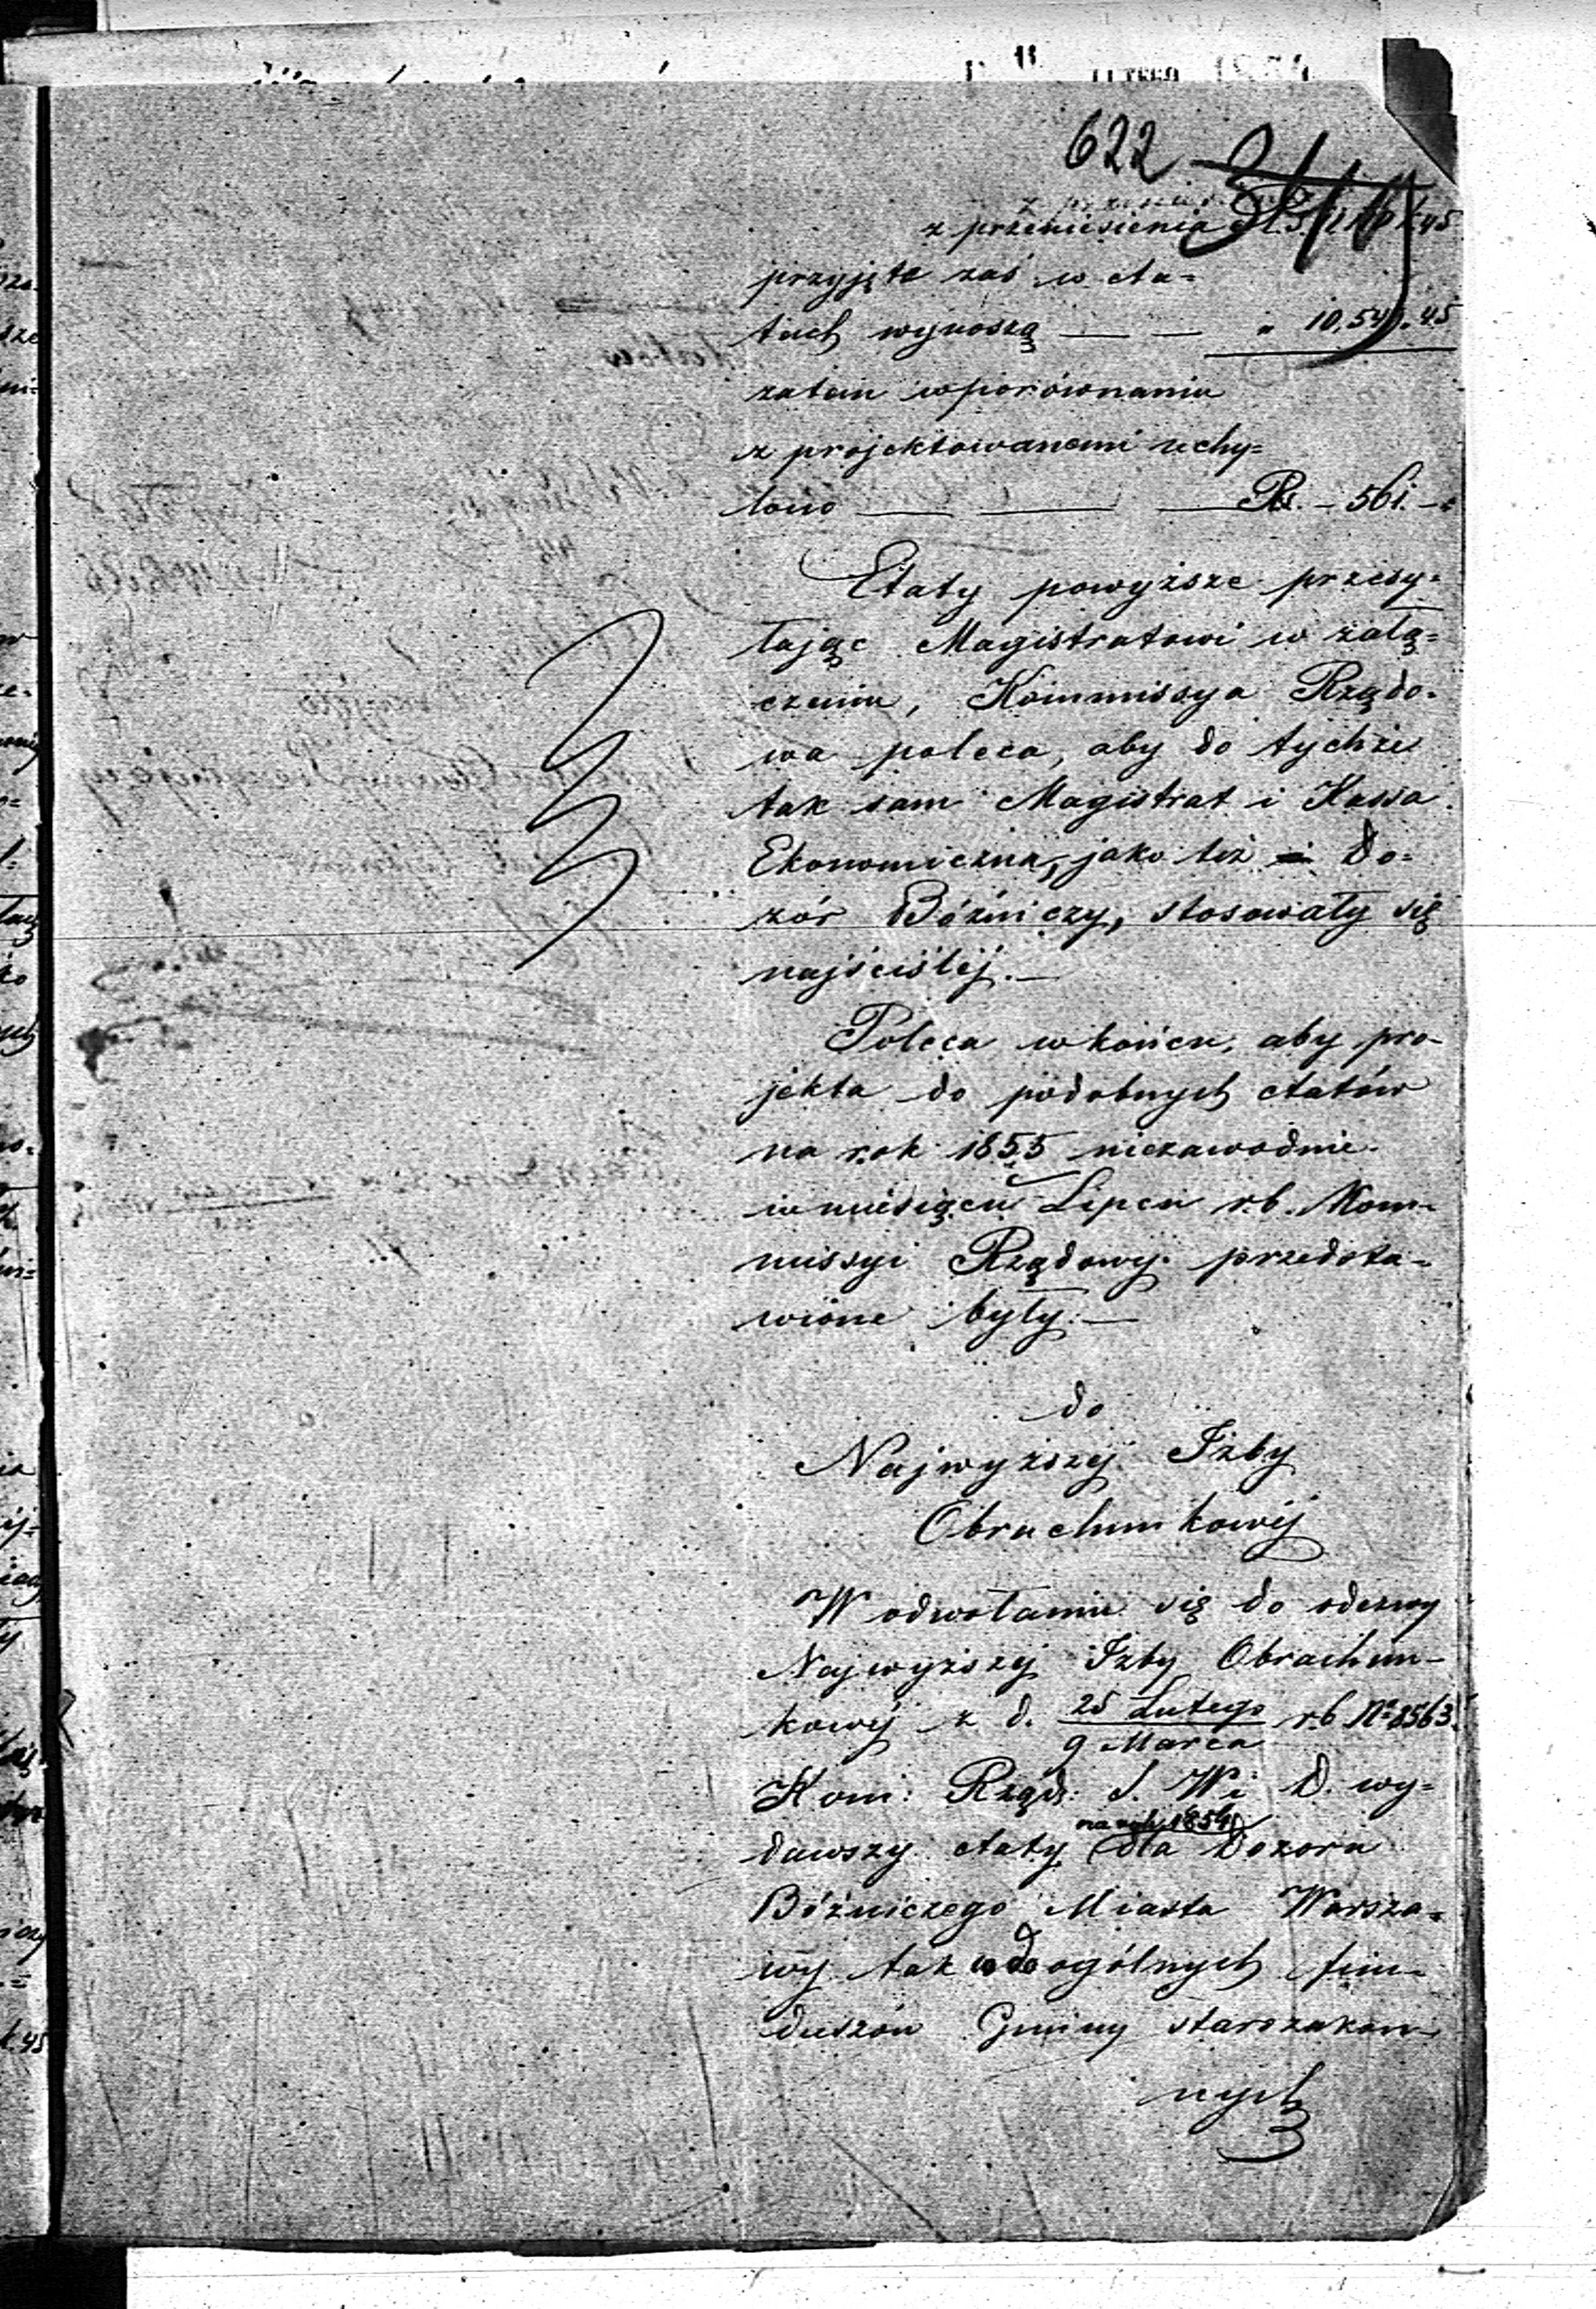 622
z przeniesienia
przyjęte zaś w eta-
tach wynoszą — — „ 10,540.45
zatem w porównaniu
z projektowanemi uchy-
lono — — — Rs. – 561. –
Etaty powyższe przesy-
łając Magistratowi w załą-
czeniu, Kommissya Rządo-
wa poleca, aby do tychże
tak sam Magistrat i Kassa
Ekonomiczna, jako też Do-
zór Bóźniczy, stosowały się
najściślej.—
Poleca w końcu, aby pro-
jekta do podobnych etatów
na rok 1855 niezawodnie
w miesiącu Lipcu r.b. Kom-
missyi Rządowej przedsta-
wione były.—
do
Najwyższej Izby
Obrachunkowéj
W odwołaniu się do odezwy
Najwyższej Izby Obrachun-
kowéj z d. 25 Lutego r.b. No 8563
9 Marca
Kom: Rząd: S. W. i D. wy-
na rok 1854
dawszy etaty dla Dozoru
Bóźniczego Miasta Warsza-
wy tak do ogólnych fun-
duszów Gminy starozakon-
nych